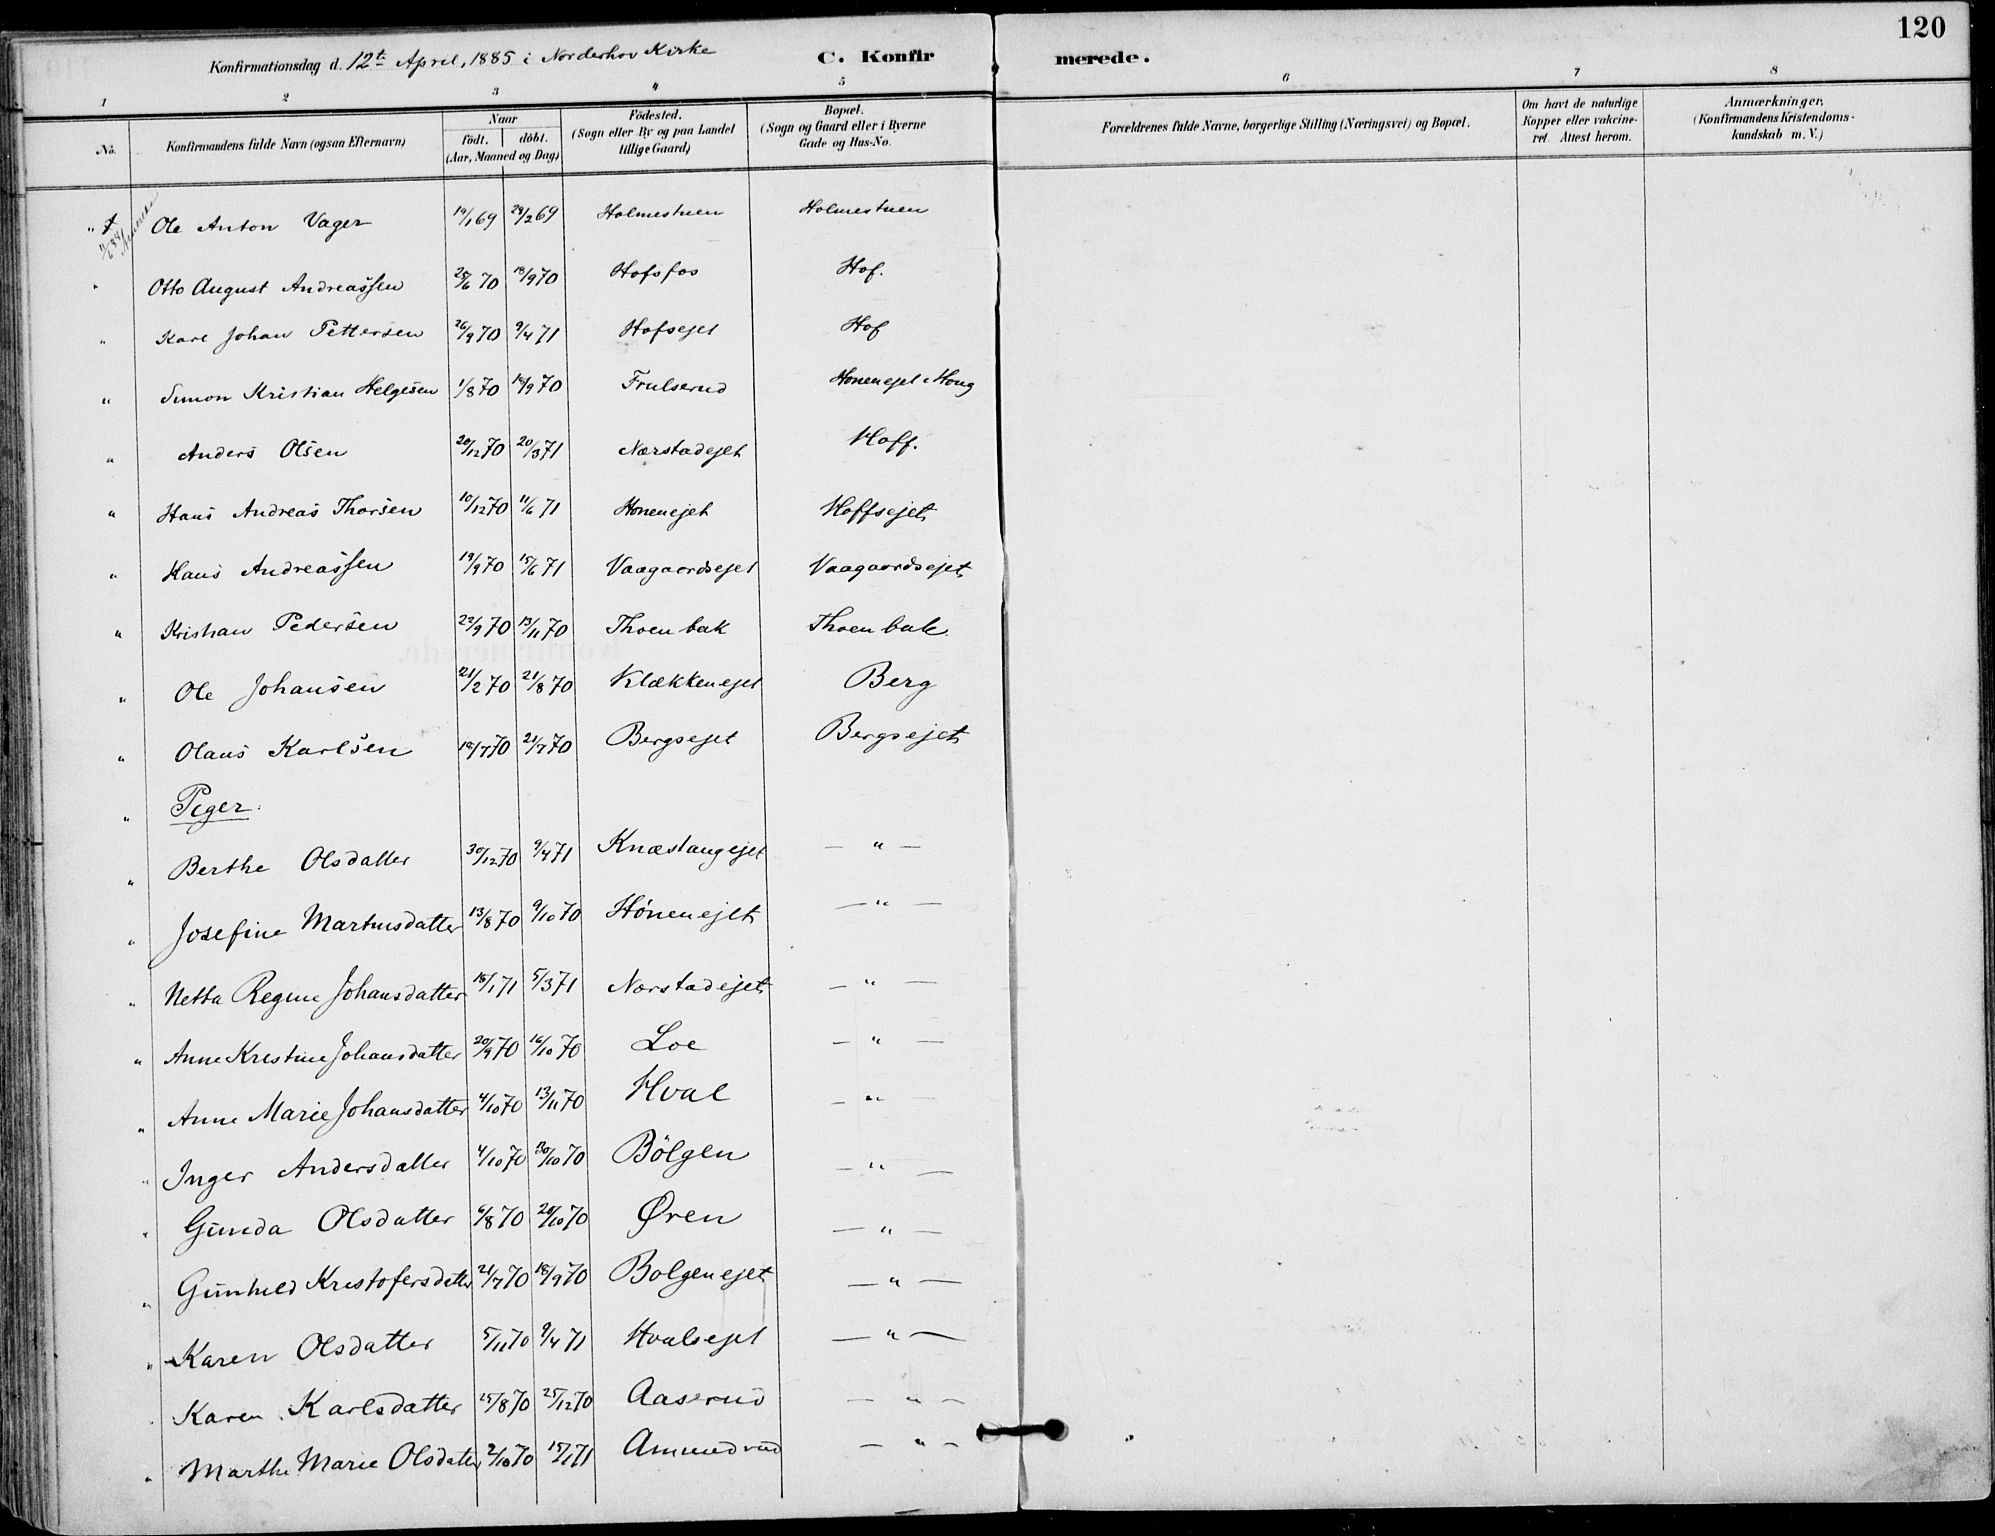 120
Konfirmationsdag d. 12te April, 1885 i Norderhov Kirke C. Konfirmerede.
1 2 3 4 5 6 7 8
No. Konfirmandens fulde Navn (ogsaa Efternavn) Naar født. døbt. (Aar, Maaned og Dag) Födested. (Sogn eller By og paa Landet tillige Gaard) Bopæl. (Sogn og Gaard eller i Byerne Gade og Hus-No. Forældrenes fulde Navne, borgerlige Stilling (Næringsvei) og Bopæl. Om havt de naturlige Kopper eller vakcineret. Attest herom. Anmærkninger. (Konfirmandens Kristendomskundskab m. V.)
" Ole Anton Vager 19/1 69 28/2 69 Holmestuen Holmestuen
" Otto August Andreassen 25/6 70 18/9 70 Hofsfos Hof.
" Karl Johan Pettersen 26/9 70 9/4 71 Hofsejet Hof
" Simon Kristian Helgesen 1/8 70 18/9 70 Frulserud Honenejet Houg
" Anders Olsen 20/12 70 20/3 71 Nærstadejet Hoff.
" Hans Andreas Thorsen 10/12 70 11/6 71 Honenejet Hoffsejet
" Hans Andreassen 19/9 70 15/6 71 Vaagaardsejet Vaagaardsejet
" Kristian Pedersen 23/9 70 13/11 70 Thoenbak Thoenbak
" Ole Johansen 21/2 70 21/8 70 Klækkenejet Berg
" Olaus Karlsen 18/7 70 21/7 70 Bergsejet Bergsejet
" Piger.
" Berthe Olsdatter 30/12 70 9/4 71 Knæstangejet — " —
" Josefine Martinsdatter 13/8 70 9/10 70 Hönenejet — " —
" Netta Regine Johansdatter 18/1 71 5/3 71 Nærstadejet — " —
" Anne Kristine Johansdatter 20/9 70 16/10 70 Loe — " —
" Anne Marie Johansdatter 4/10 70 13/11 70 Hval — " —
" Inger Andersdatter 4/10 70 30/10 70 Bölgen — " —
" Gunda Olsdatter 6/8 70 20/10 70 Øren — " —
" Gunhild Kristofersdatter 21/7 70 18/9 70 Bolgenejet — " —
" Karen Olsdatter 5/11 70 9/4 71 Hvalsejet — " —
" Karen Karlsdatter 25/8 70 25/12 70 Aaserud — " —
" Marthe Marie Olsdatter 2/10 70 15/1 71 Amundrud — " —